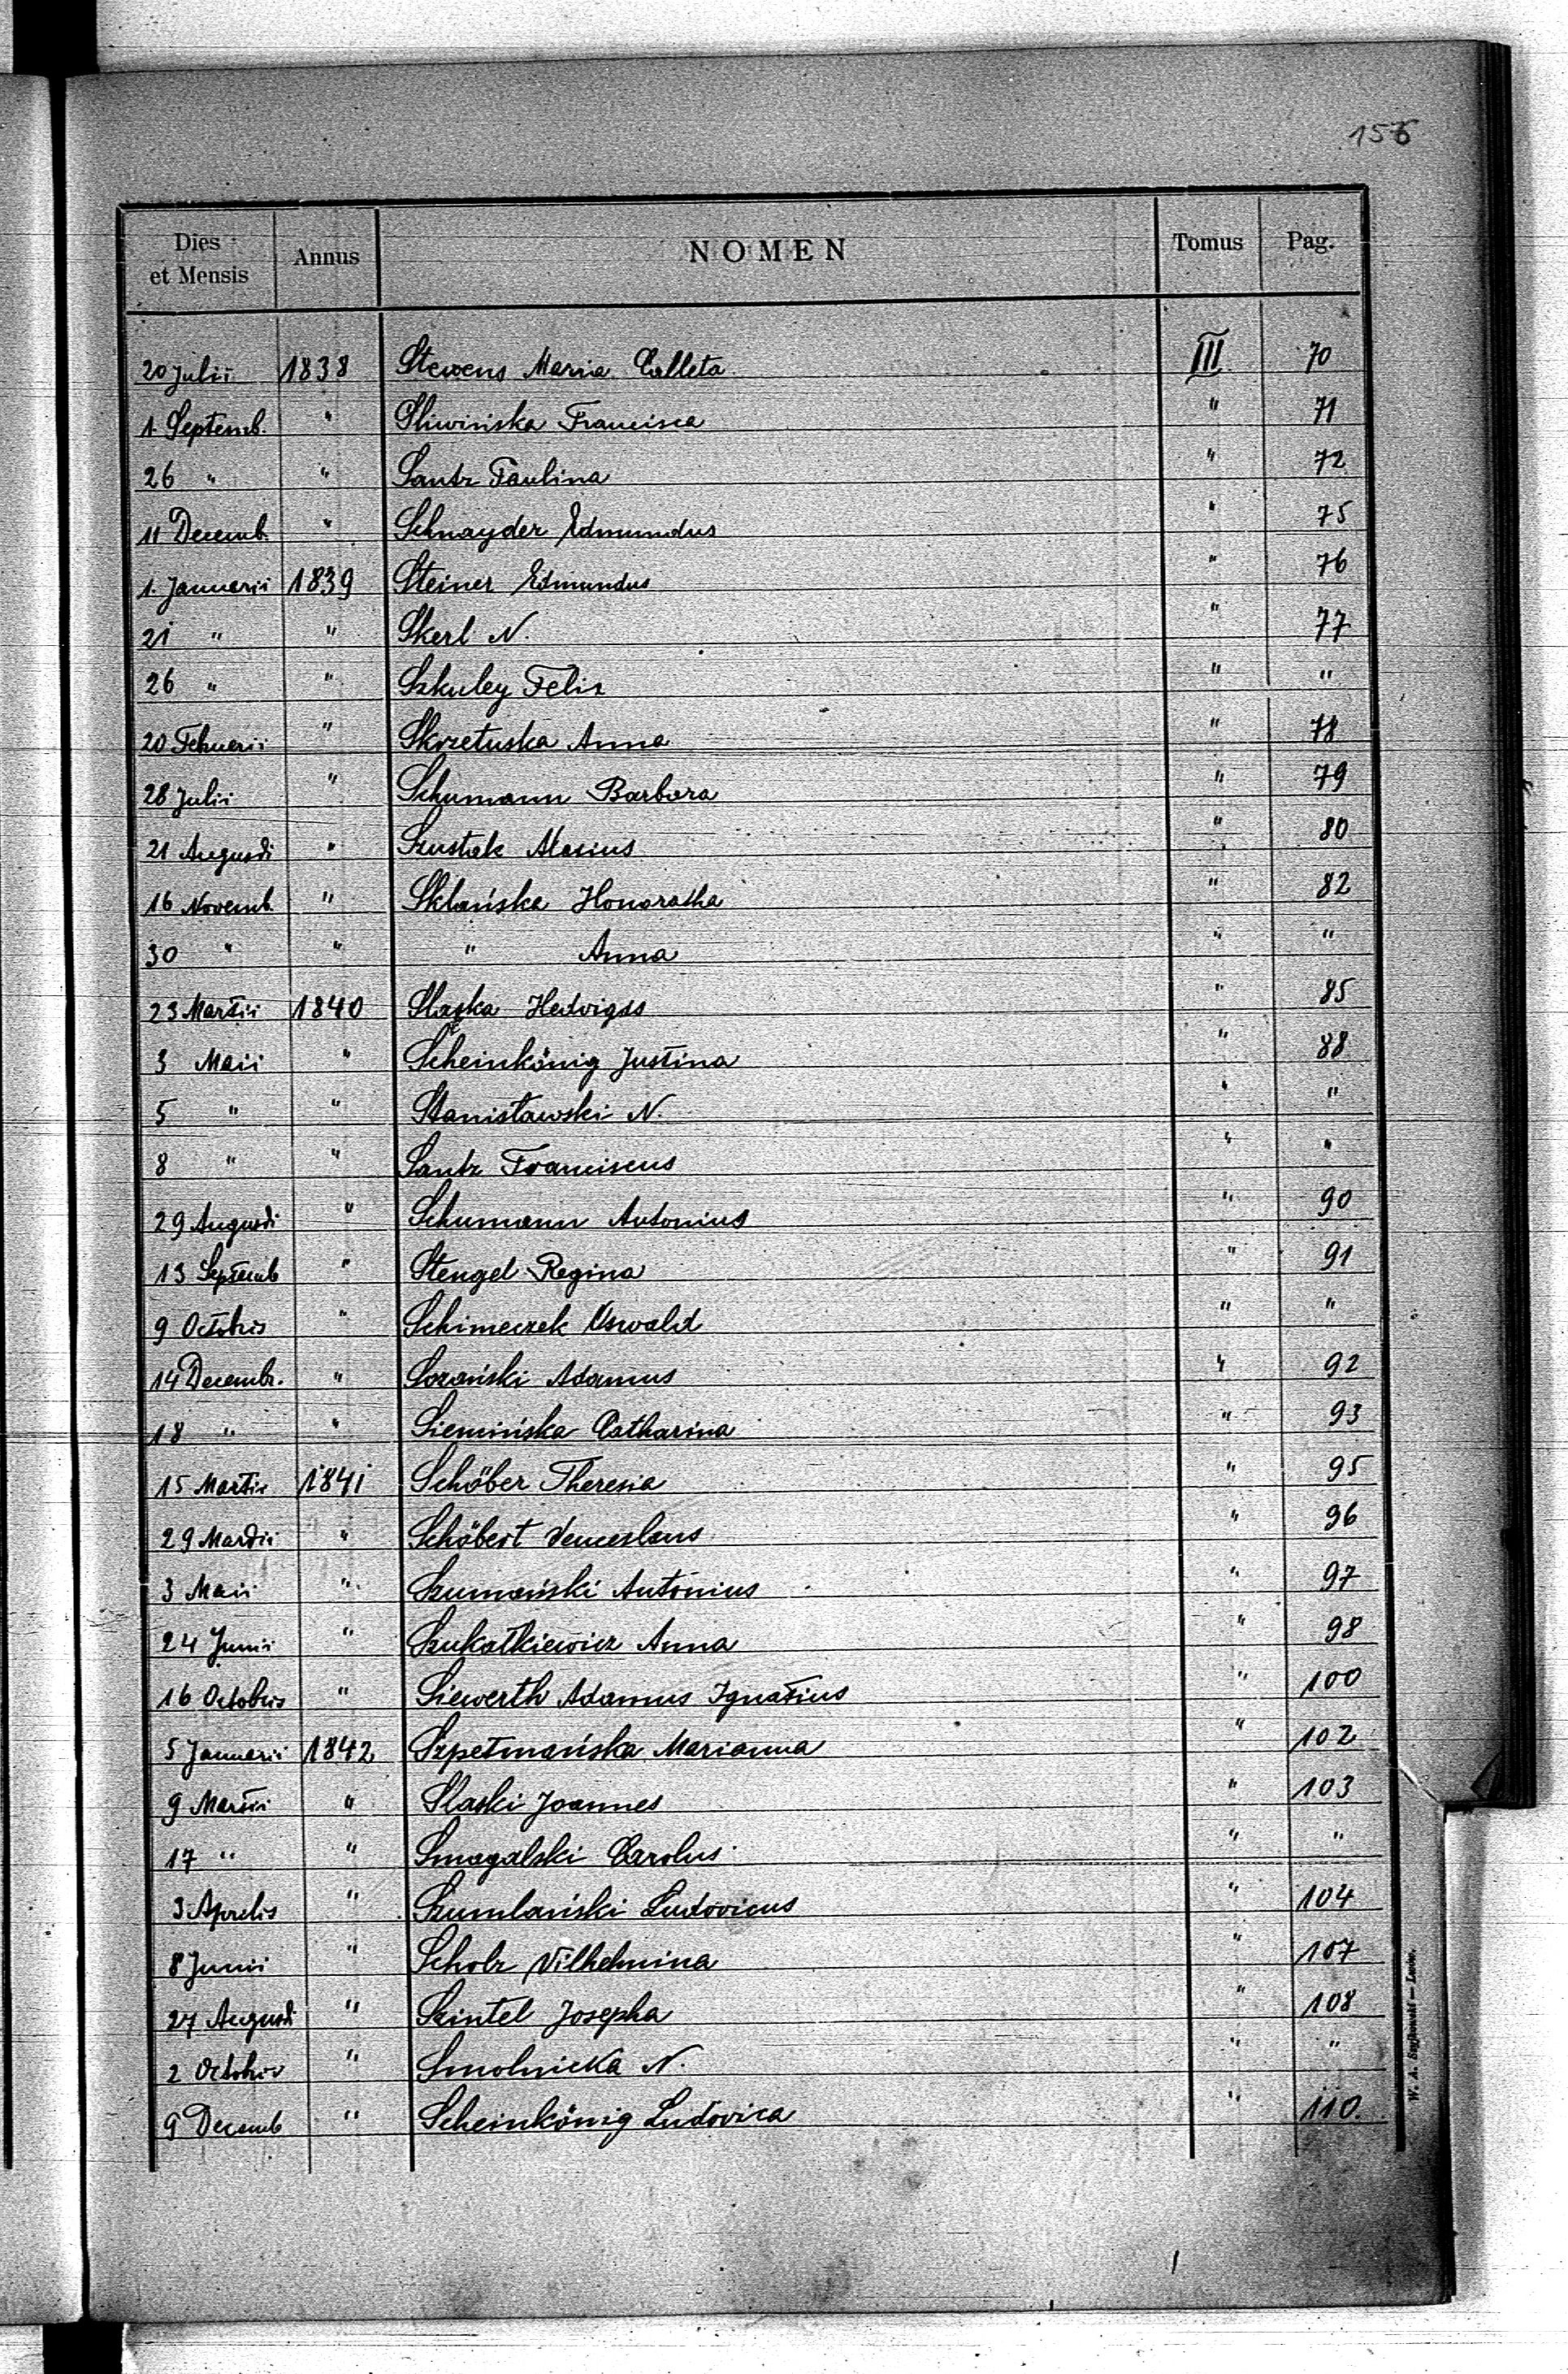 156
Dies et Mensis Annus NOMEN Tomus Pag.
20 Julii 1838 Stewens Maria Colleta III 70
1. Septemb. " Sliwińska Francisca " 71
26 " " Santz Paulina " 72
11 Decemb. " Schnayder Edmundus " 75
1. Januarii 1839 Steiner Edmundus " 76
21 " " Skerl N. " 77
26 " " Szkuley Felix " "
20 Februarii " Skrzetuska Anna " 78
28 Julii " Schumann Barbara " 79
21 Augusti " Szustak Alexius " 80
16 Novemb. " Sklańska Honoratha " 82
30 " " " Anna " "
23 Martii 1840 Slaska Hedvigis " 85
3 Maii " Scheinkönig Justina " 88
5 " " Stanisławski N. " "
8 " " Santz Franciscus " "
29 Augusti " Schumann Antonius " 90
13 Septemb " Stengel Regina " 91
9 Octobris " Schimeczek Oswald " "
14 Decembr. " Sozański Adamus " 92
18 " " Siemińska Catharina " 93
15 Martii 1841 Schöber Theresia " 95
29 Martii " Schöbert Venceslaus " 96
3 Maii " Szumański Antonius " 97
24 Junii " Szukatkiewicz Anna " 98
16 Octobris " Siewerth Adamus Ignatius " 100
5 Januarii 1842 Szpetmańska Marianna " 102
9 Martii " Slaski Joannes " 103
17 " " Smagalski Carolus " "
3 Aprelis " Szumlański Ludovicus " 104
8 Junii " Scholz Vilhelmina " 107
27 Augusti " Szintel Josepha " 108
2 Octobris " Smolnicka N. " "
9 Decemb " Scheinkönig Ludovica " 110.
W. A. — Lwów.